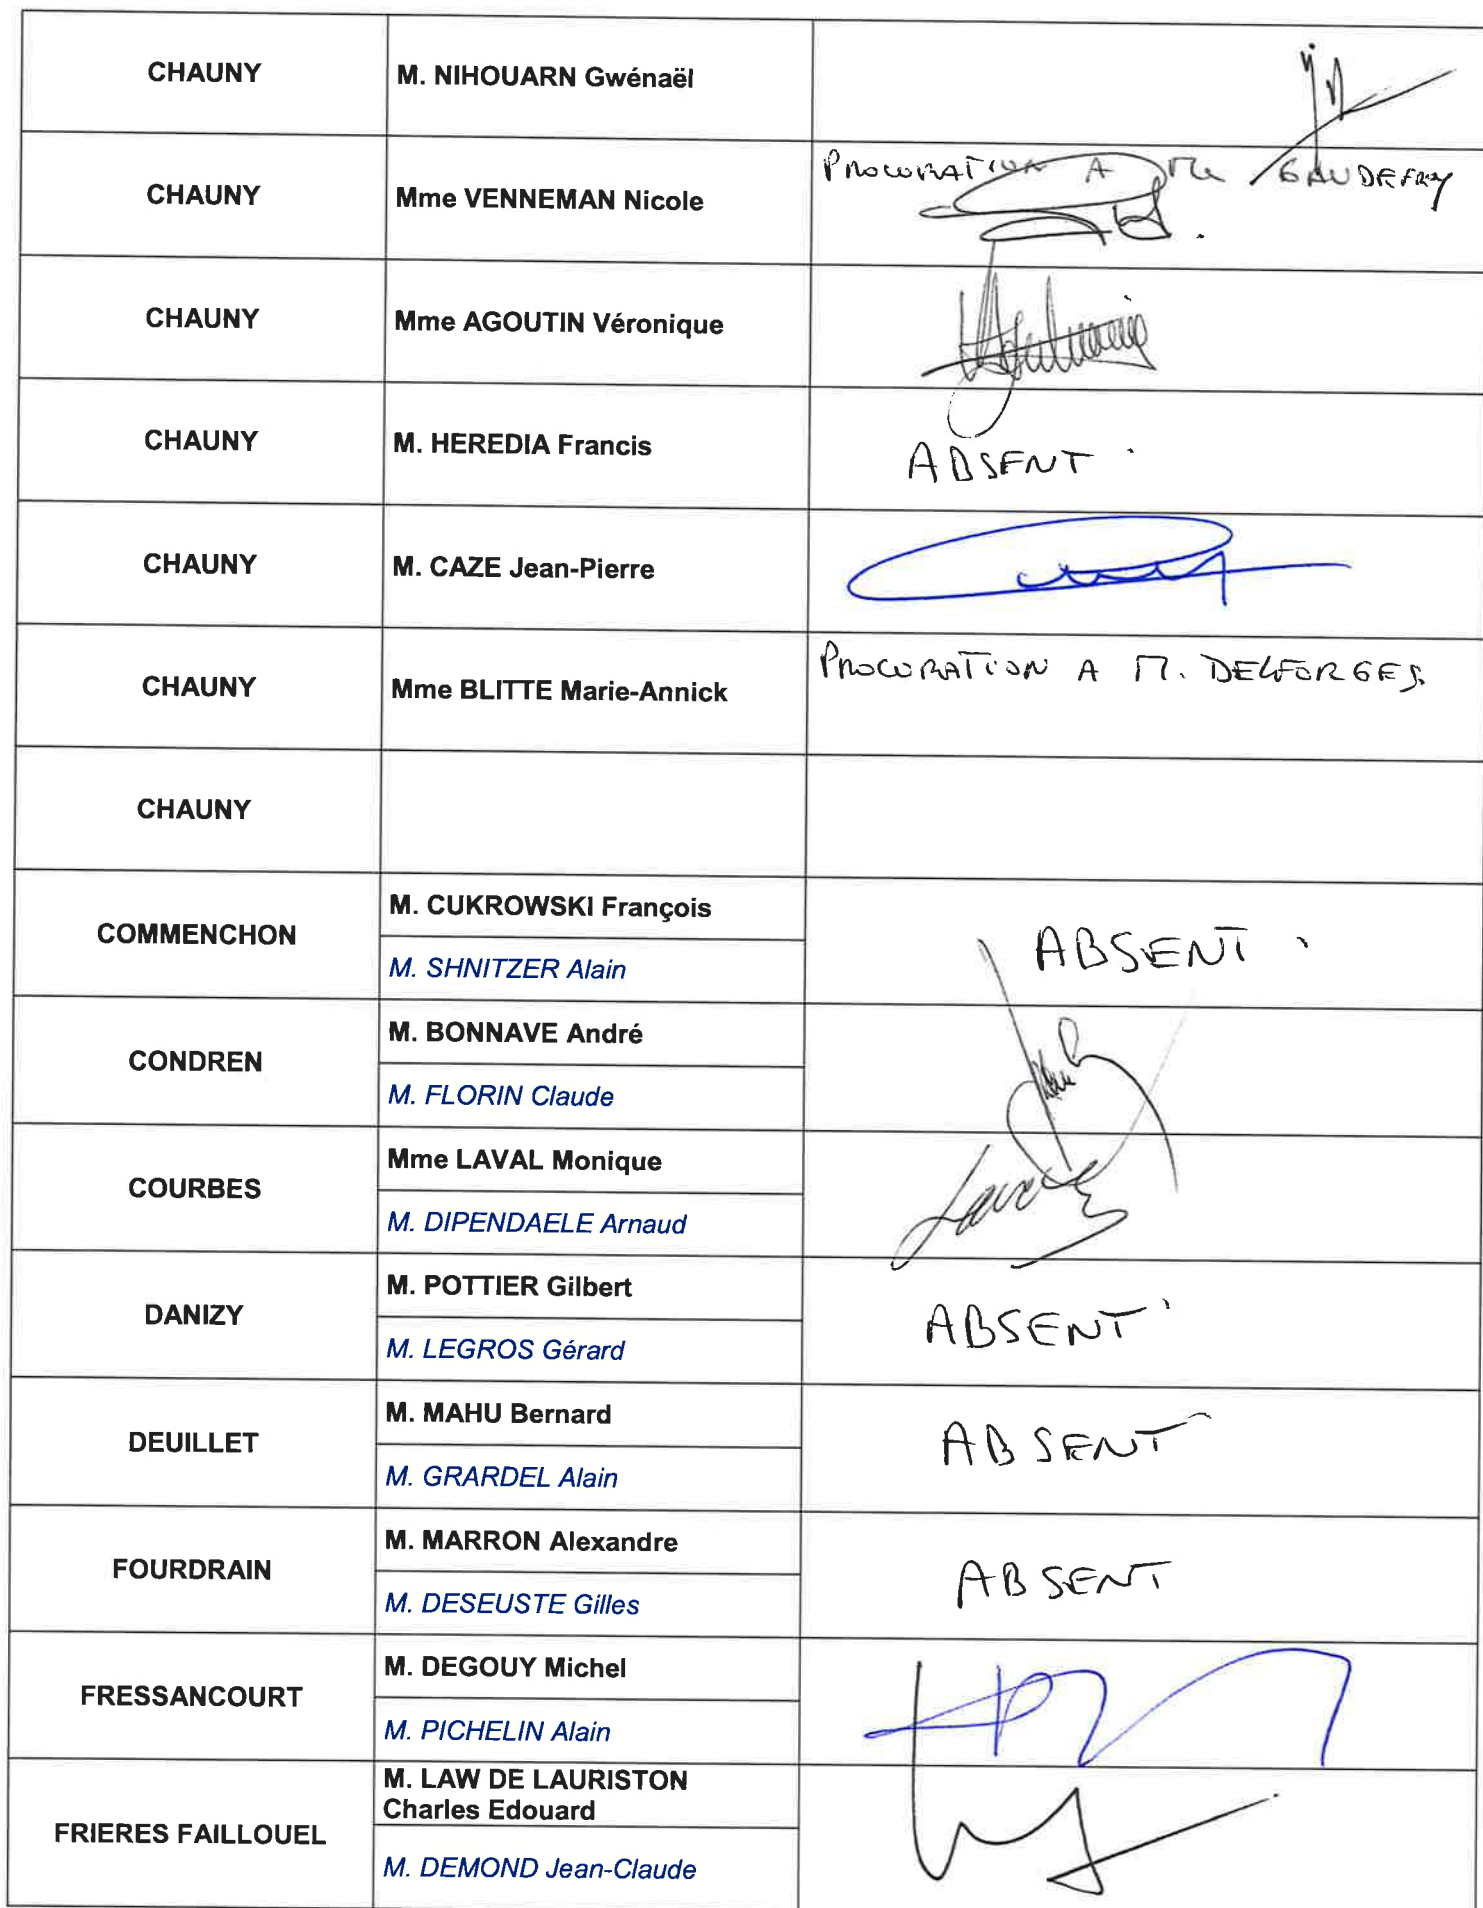 CHAUNY
M. NIHOUARN Gwénaël
CHAUNY
Mme VENNEMAN Nicole
PROCURATION A Mme GAUDEFROY
CHAUNY
Mme AGOUTIN Véronique
CHAUNY
M. HEREDIA Francis
ABSENT.
CHAUNY
M. CAZE Jean-Pierre
CHAUNY
Mme BLITTE Marie-Annick
PROCURATION A M. DELFORGES.
CHAUNY
COMMENCHON
M. CUKROWSKI François
M. SHNITZER Alain
ABSENT
CONDREN
M. BONNAVE André
M. FLORIN Claude
COURBES
Mme LAVAL Monique
M. DIPENDAELE Arnaud
DANIZY
M. POTTIER Gilbert
M. LEGROS Gérard
ABSENT
DEUILLET
M. MAHU Bernard
M. GRARDEL Alain
ABSENT
FOURDRAIN
M. MARRON Alexandre
M. DESEUSTE Gilles
ABSENT
FRESSANCOURT
M. DEGOUY Michel
M. PICHELIN Alain
FRIERES FAILLOUEL
M. LAW DE LAURISTON
Charles Edouard
M. DEMOND Jean-Claude